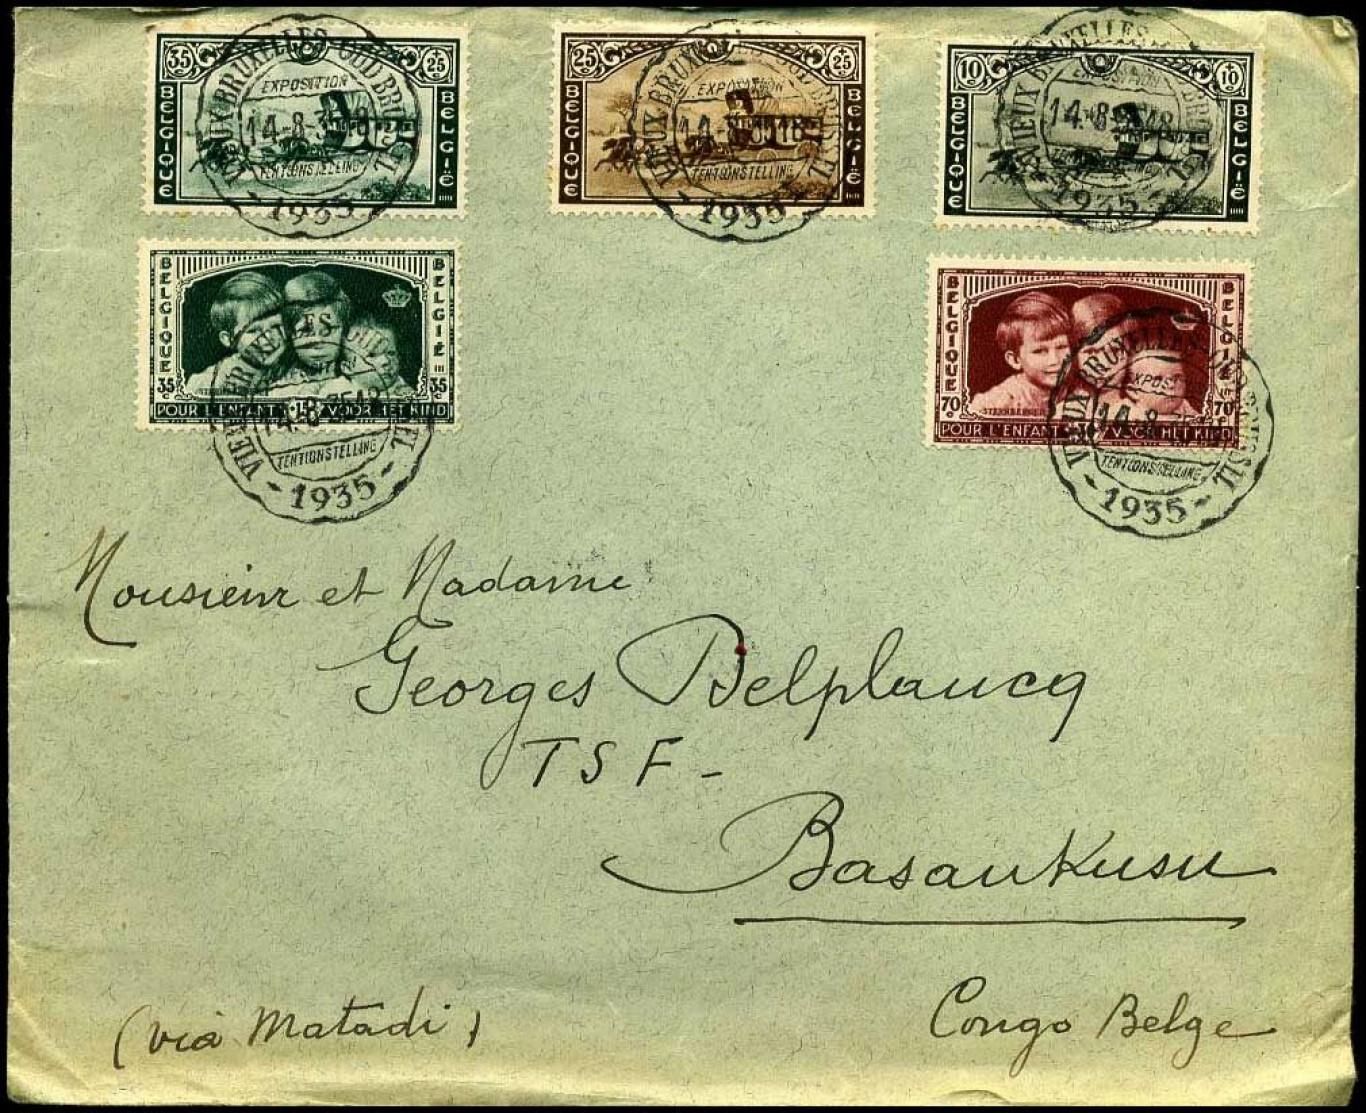 35 c + 25 c
BELGIQUE BELGIË
25 c + 25 c
BELGIQUE BELGIË
10 c + 10 c
BELGIQUE BELGIË
VIEUX BRUXELLES OUD BRUSSEL
EXPOSITION
14-8-35 18
TENTOONSTELLING
- 1935 -
VIEUX BRUXELLES OUD BRUSSEL
EXPOSITION
14-8-35 18
TENTOONSTELLING
- 1935 -
VIEUX BRUXELLES OUD BRUSSEL
14-8-35 18
- 1935 -
BELGIQUE BELGIË
35 c 35 c
POUR L'ENFANT VOOR HET KIND
BELGIQUE BELGIË
70 c 70 c
POUR L'ENFANT VOOR HET KIND
VIEUX BRUXELLES OUD BRUSSEL
14-8-35 18
TENTOONSTELLING
- 1935 -
VIEUX BRUXELLES OUD BRUSSEL
EXPOSITION
14-8-35
TENTOONSTELLING
- 1935 -
Monsieur et Madame
Georges Delplancq
TSF -
Basankusu
(via Matadi)
Congo Belge